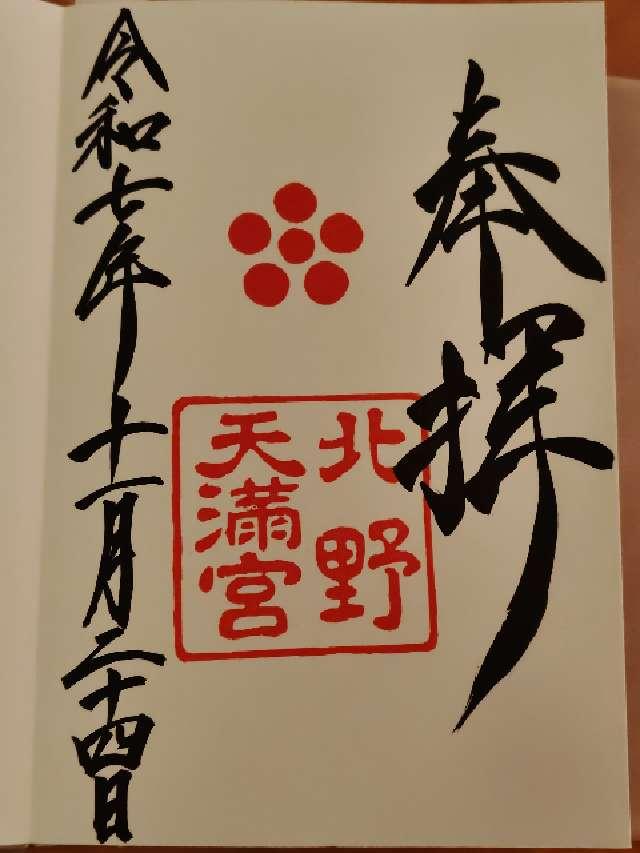 奉拝
北野
天満宮
令和七年十一月二十四日